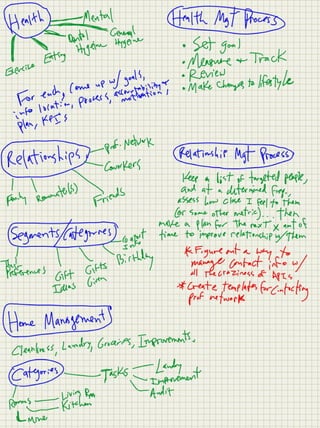 Health
Mental
General
Hygiene
Dental
Hygiene
Eating
Exercise
For each, come up w/ goals,
info location, process, accountability &
motivation,
plan, KPI's
Health Mgt Process
• Set goal
• Measure & Track
• Review
• Make changes to lifestyle
Relationships
Prof. Network
Coworkers
Friends
Roommate(s)
Family
Relationship Mgt Process
Keep a list of targeted people,
and at a determined freq,
assess how close I feel to them
(or some other metric). Then
make a plan for the next X amt of
time to improve relationship w/ them
* Figure out a way to
manage contact info w/
all the craziness of APIs
* Create templates for contacting
prof network
Segments/Categories
Contact
Info
Birthday
Gifts
Given
Gift
Ideas
Their
Preferences
Home Management
Cleanliness, Laundry, Groceries, Improvements,
Categories
Tasks
Laundry
Improvement
Audit
Rooms
Living Rm
Kitchen
Mine